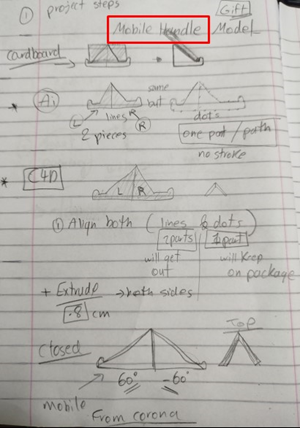 ① project steps
Gift
Mobile Handle Model
Cardboard
Ai
same but
L lines R
dots
2 pieces
one part / path
no stroke
C4D
L R
① Align both (lines & dots)
2 parts 1 part
will get out
will keep on package
+ Extrude → both sides
.8 cm
Closed
Top
60° -60°
mobile
From corona